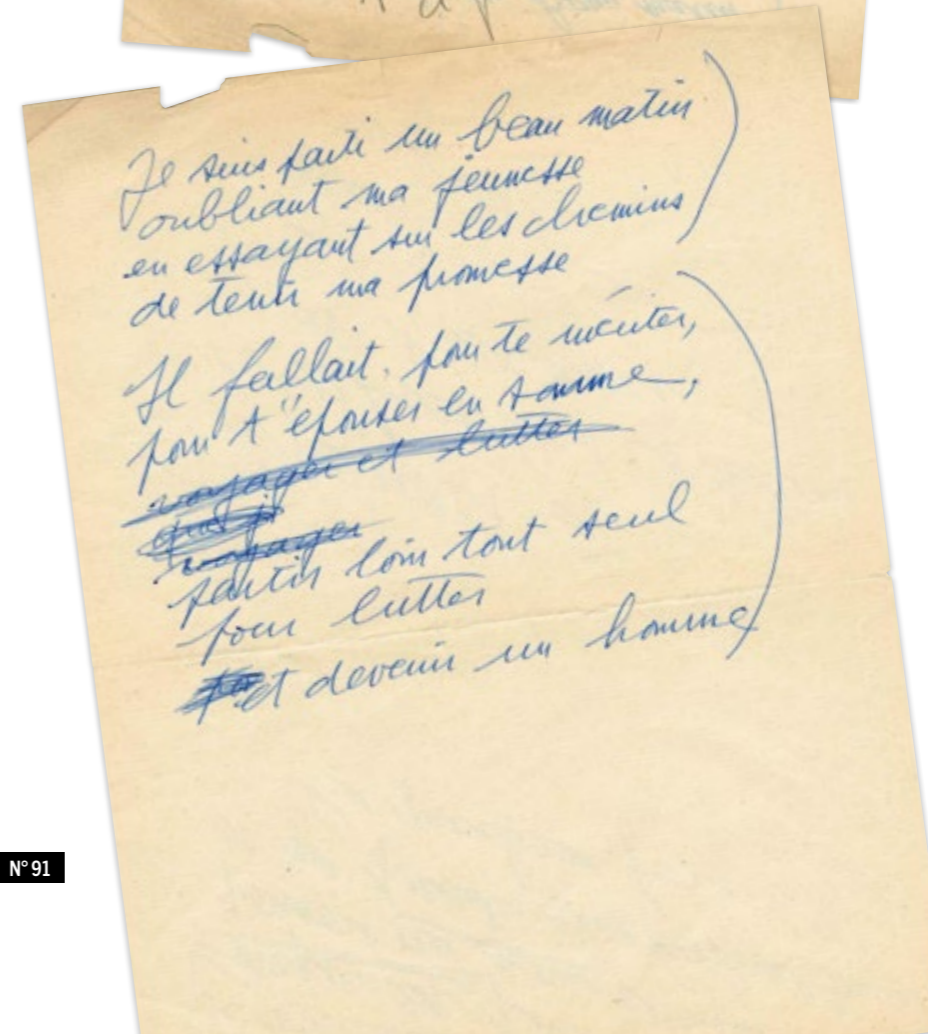 Je suis parti un beau matin
oubliant ma jeunesse
en essayant sur les chemins
de tenir ma promesse
Il fallait, pour te mériter,
pour t'épouser en somme,
voyager et lutter
voyager
partir loin tout seul
pour lutter
et devenir un homme
N° 91